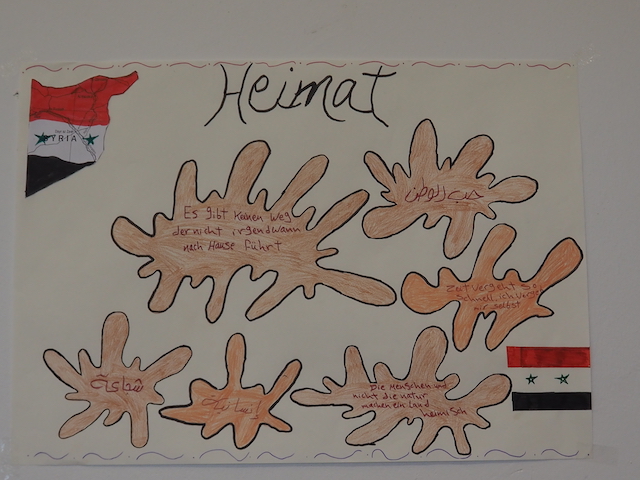 Heimat
SYRIA
Es gibt keinen weg
der nicht irgendwann
nach Hause führt
حب الوطن
Zeit vergeht so
schnell, ich
mir selbst
شجاعة
إنسانية
Die Menschen und
nicht die natur
machen ein Land
heimisch